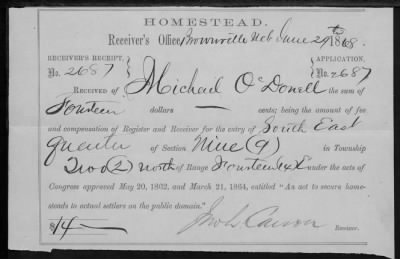 HOMESTEAD.
Receiver's Office, Brownville Neb June 29th 1868.
RECEIVER'S RECEIPT, APPLICATION,
No. 2687 No. 2687
RECEIVED OF Michael O'Donell the sum of
Fourteen dollars — cents; being the amount of fee
and compensation of Register and Receiver for the entry of South East
quarter of Section Nine (9) in Township
Two (2) north of Range Fourteen 14 E under the acts of
Congress approved May 20, 1862, and March 21, 1864, entitled "An act to secure home-
steads to actual settlers on the public domain."
$14— Jno L Carson Receiver.